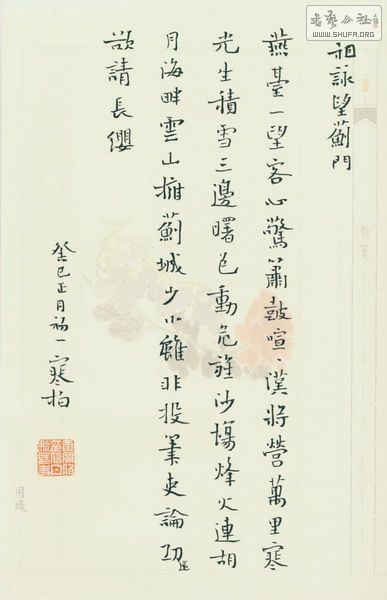 書藝公社
WWW.SHUFA.ORG
祖詠望薊門
燕臺一望客心驚簫鼓喧〻漢將營萬里寒
光生積雪三邊曙色動危旌沙場烽火連胡
月海畔雲山擁薊城少小雖非投筆吏論功還
欲請長纓
癸巳正月初一寒柏
用箋